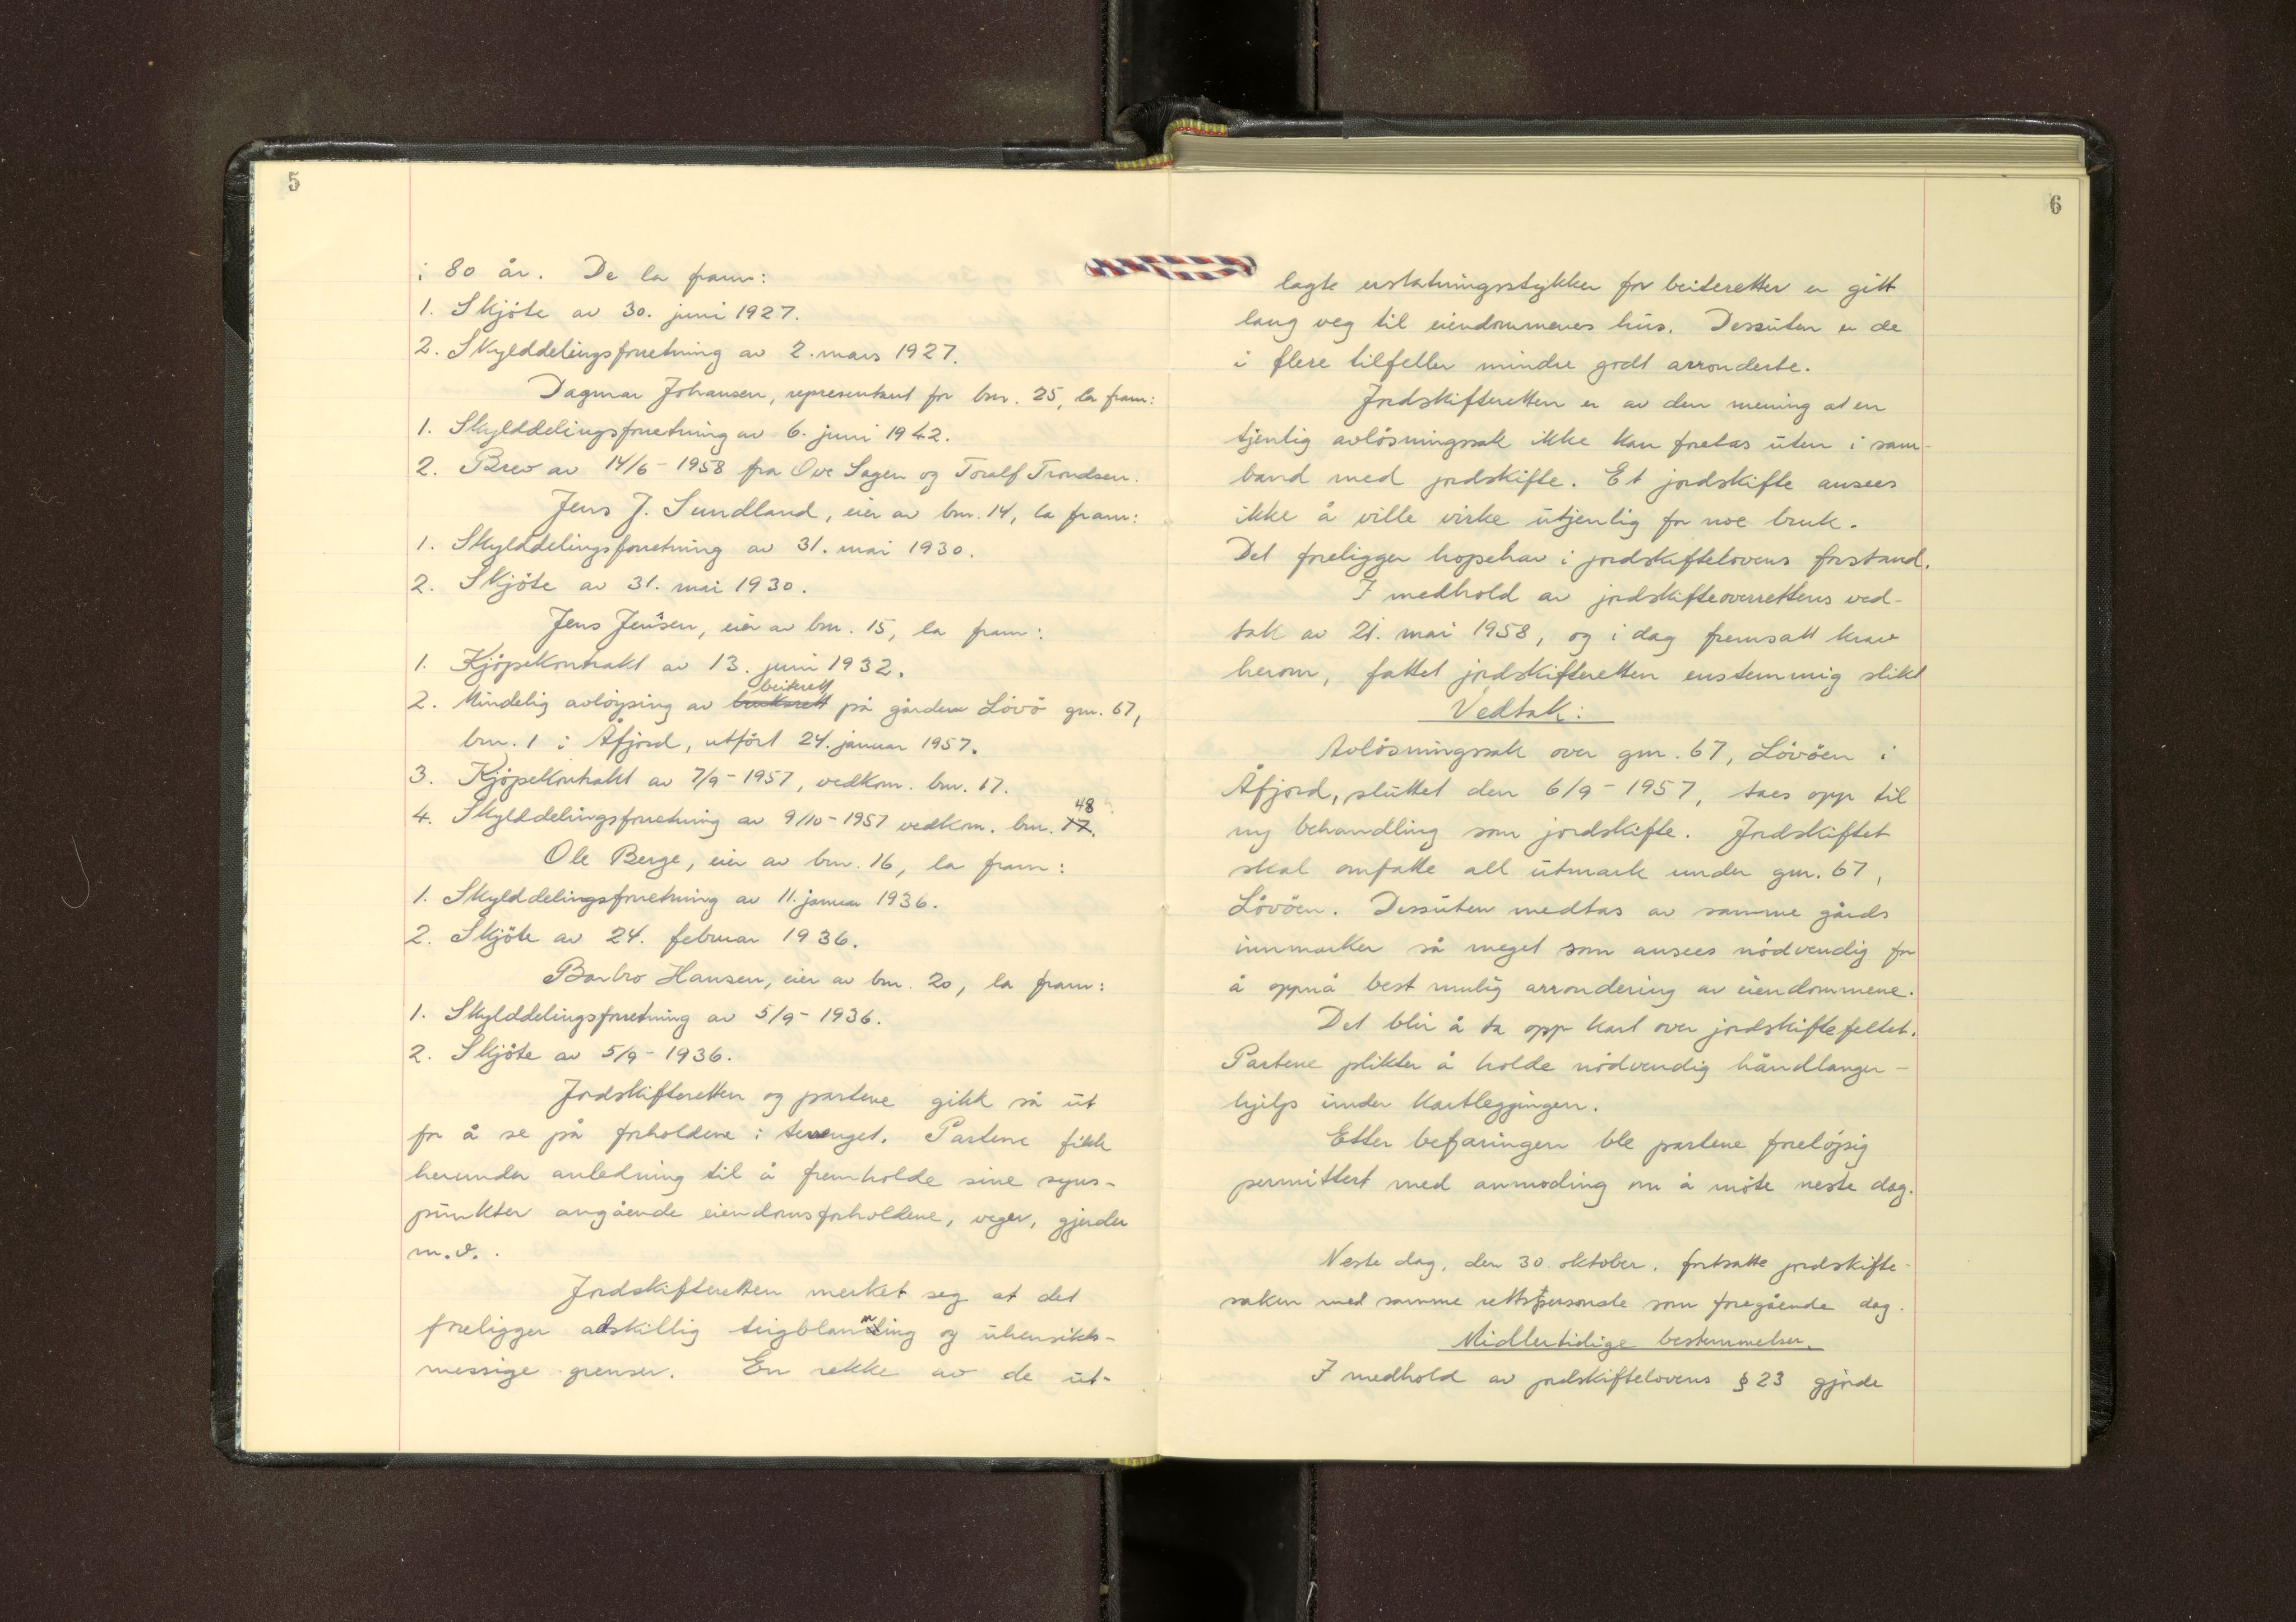 5
i 80 år. De la fram:
1. Skjöte av 30. juni 1927.
2. Skylddelingsforretning av 2. mars 1927.
Dagmar Johansen, representant for bnr. 25, la fram:
1. Skylddelingsforretning av 6. juni 1942.
2. Brev av 14/6-1958 fra Ove Sagen og Toralf Trondsen.
Jens J. Sundland, eier av bnr. 14, la fram:
1. Skylddelingsforretning av 31. mai 1930.
2. Skjöte av 31. mai 1930.
Jens Jensen, eier av bnr. 15, la fram:
1. Kjöpekontrakt av 13. juni 1932.
beiterett
2. Mindelig avløysing av bruksrett på gården Lövö gnr. 67,
bnr. 1 i Åfjord, utfört 24. januar 1957.
3. Kjöpekontrakt av 7/9-1957, vedkom. bnr. 17.
48
4. Skylddelingsforretning av 9/10-1957 vedkom. bnr. 17.
Ole Berge, eier av bnr. 16, la fram:
1. Skylddelingsforretning av 11. januar 1936.
2. Skjöte av 24. februar 1936.
Barbro Hansen, eier av bnr. 20, la fram:
1. Skylddelingsforretning av 5/9-1936.
2. Skjöte av 5/9-1936.
Jordskifteretten og partene gikk så ut
for å se på forholdene i terrenget. Partene fikk
herunder anledning til å fremholde sine syns-
punkter angående eiendomsforholdene, veger, gjerder
m.v..
Jordskifteretten merket seg at det
foreligger adskillig teigblanding og uhensikts-
messige grenser. En rekke av de ut-
6
lagte erstatningsstykker for beiteretter er gitt
lang veg til eiendommenes hus. Dessuten er de
i flere tilfeller mindre godt arronderte.
Jordskifteretten er av den mening at en
tjenlig avlösningssak ikke kan foretas uten i sam-
band med jordskifte. Et jordskifte ansees
ikke å ville virke utjenlig for noe bruk.
Det foreligger hopehav i jordskiftelovens forstand.
I medhold av jordskifteoverrettens ved-
tak av 21. mai 1958, og i dag fremsatt krav
herom, fattet jordskifteretten enstemmig slikt
Vedtak:
Avlösningssak over gnr. 67, Lövöen i
Åfjord, sluttet den 6/9-1957, taes opp til
ny behandling som jordskifte. Jordskiftet
skal omfatte all utmark under gnr. 67,
Lövöen. Dessuten medtas av samme gårds
innmarker så meget som ansees nödvendig for
å oppnå best mulig arrondering av eiendommene.
Det blir å ta opp kart over jordskiftefeltet.
Partene plikter å holde nödvendig håndlanger-
hjelp under kartleggingen.
Etter befaringen ble partene foreløpig
permittert med anmoding om å möte neste dag.
Neste dag, den 30. oktober, fortsatte jordskifte-
saken med samme rettspersonale som foregående dag.
Midlertidige bestemmelser.
I medhold av jordskiftelovens § 23 gjorde